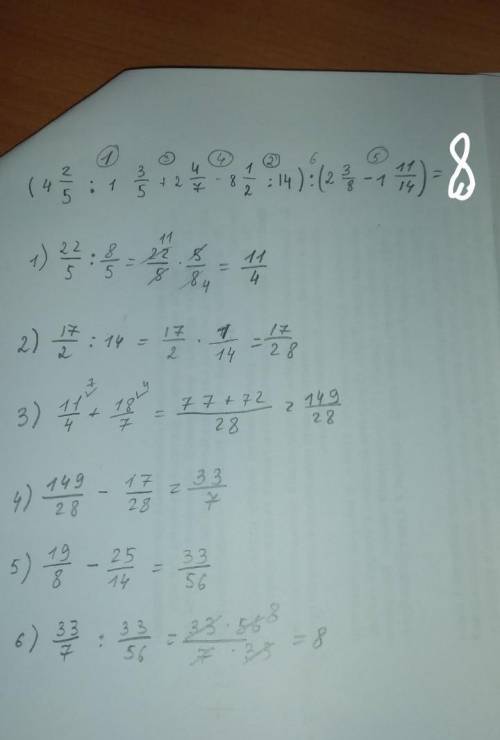 (4 2/5 : 1 3/5 + 2 4/7 - 8 1/2 : 14) : (2 3/8 - 1 11/14) = 8
1) 22/5 : 8/5 = 22/5 · 5/8 = 11/4
2) 17/2 : 14 = 17/2 · 1/14 = 17/28
3) 11/4 + 18/7 = 77+72/28 = 149/28
4) 149/28 - 17/28 = 33/7
5) 19/8 - 25/14 = 33/56
6) 33/7 : 33/56 = 33·56/7·33 = 8